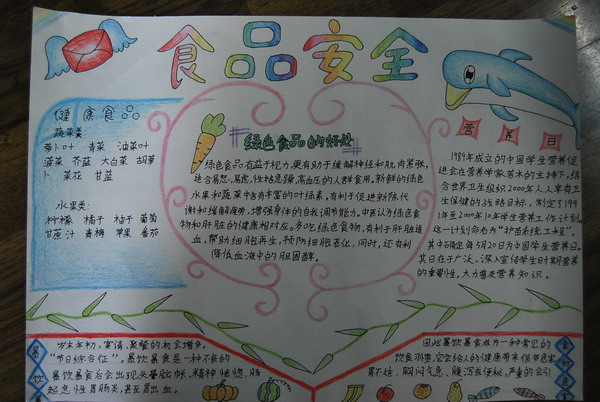 食品安全
健康食品
蔬菜类:
萝卜叶 青菜 油菜叶
菠菜 芥蓝 大白菜 胡萝
卜 菜花 甘蓝
水果类:
柠檬 橘子 柚子 葡萄
甘蔗汁 青梅 苹果 番茄
绿色食品的好处
绿色食品有益于视力,更有助于缓解神经和肌肉紧张,
适合易怒、易虑、性格急躁、高血压的人群食用。新鲜的绿色
水果和蔬菜中含有丰富的叶绿素,有利于促进新陈代
谢和缓解疲劳,增强身体的自我调节能力。中医认为绿色食
物和肝脏的健康相对应。多吃绿色食物,有利于肝脏造
血,帮助细胞再生,预防细胞老化,同时,还有利
降低血液中的胆固醇。
营养日
1989年成立的中国学生营养促
进会在营养学家苦木的主持下,结
合世界卫生组织2000年人人享有卫
生保健的战略目标,制定了199
1年至2000年10年学生营养工作计划
这一计划命名为“护苗系统工程”。
其中确定每5月20日为中国学生营养日。
其目在于广泛、深入宣传学生时期营养
的重要性,大力普及营养知识。
岁末年初,宴请、聚餐的机会增多,
“节日综合征”。暴饮暴食是一种不良的
暴饮暴食后会出现头晕脑胀、精神恍惚、肠
起急性胃肠炎,甚至胃出血。
因此暴饮暴食成为一种常见的
饮食习惯,它会给人的健康带来很多危害
胃不适、胸闷气急、腹泻或便秘,严重的会引